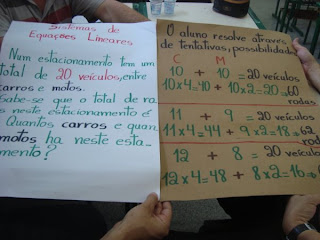 Sistemas de
Equações Lineares
Num estacionamento tem um
total de 20 veículos, entre
carros e motos.
Sabe-se que o total de ro-
s neste estacionamento é
Quantos carros e quan
motos ha neste esta-
mento?
O aluno resolve através
de tentativas, possibilidad
C M
10 + 10 = 20 veículos
10 x 4 = 40 + 10 x 2 = 20 = 60
rodas
11 + 9 = 20 veículos
11 x 4 = 44 + 9 x 2 = 18 = 62
rod
12 + 8 = 20 veículo
12 x 4 = 48 + 8 x 2 = 16 = 6